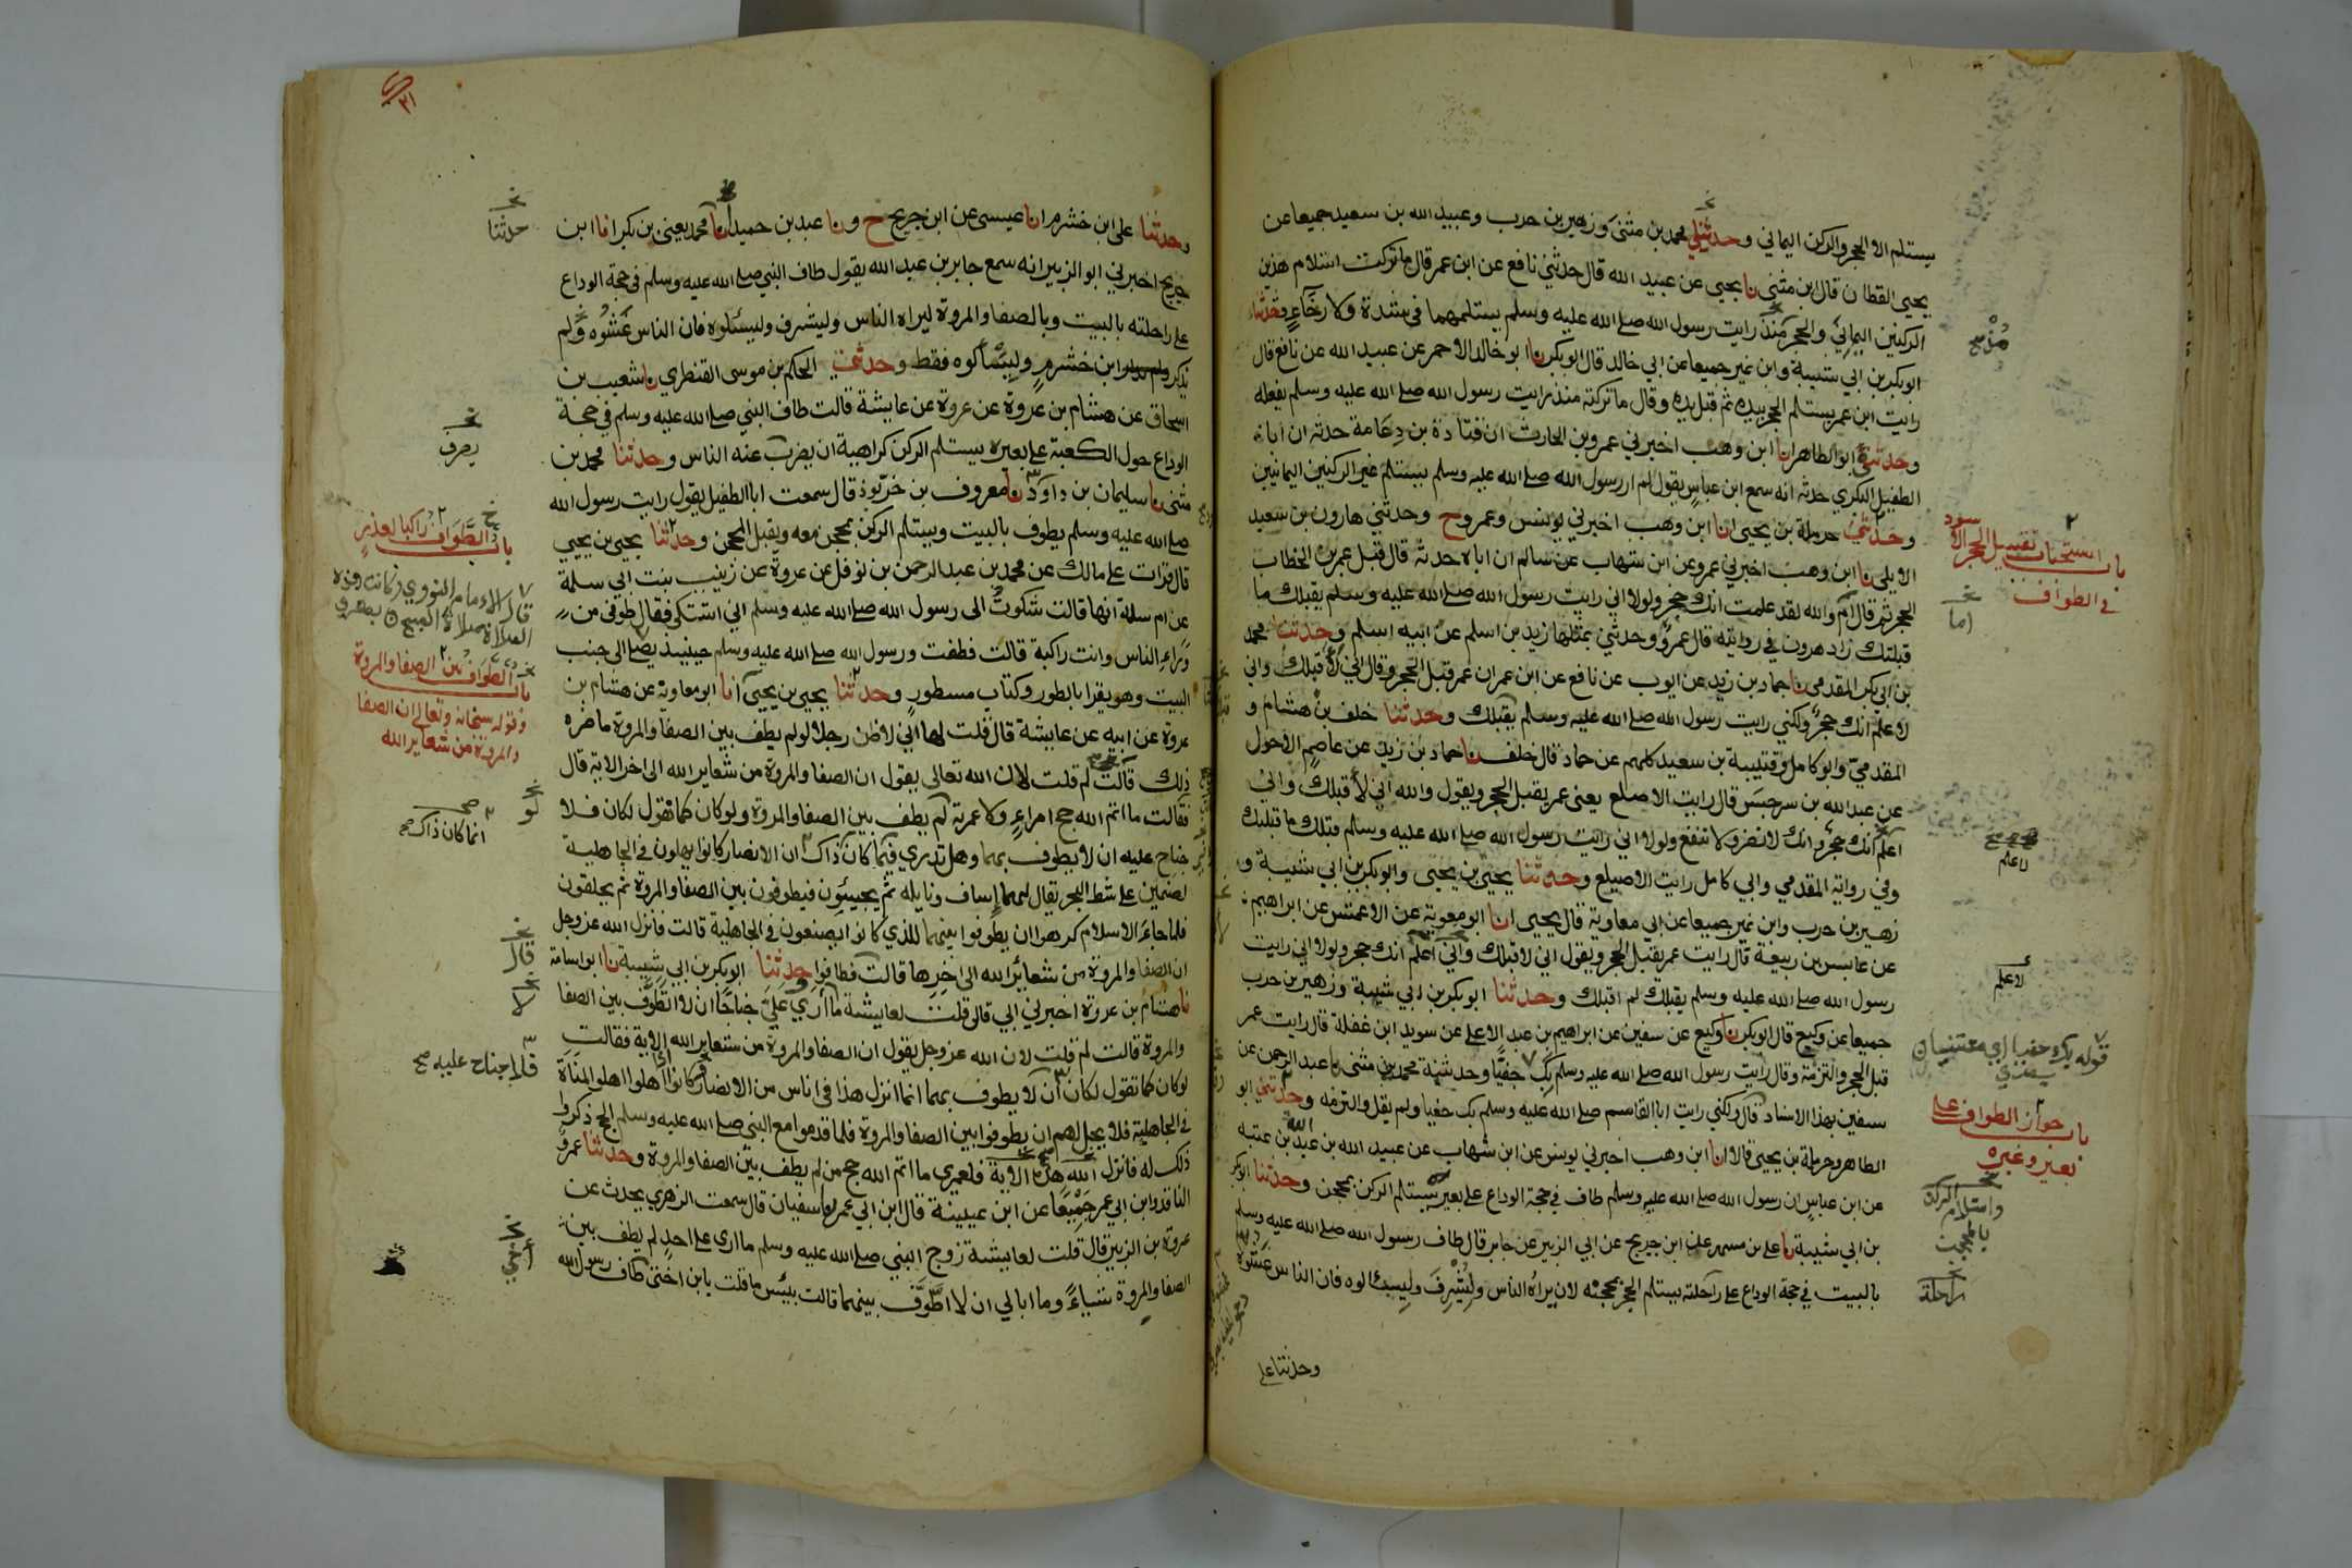 يستلم الا الحجر والركن اليماني وحدثني محمد بن مثنى وزهير بن حرب وعبيد الله بن سعيد جميعا عن
يحيى القطان قال ابن مثنى نا يحيى عن عبيد الله قال حدثني نافع عن ابن عمر قال ما تركت استلام هذين
الركنين اليماني والحجر منذ رايت رسول الله صلى الله عليه وسلم يستلمهما في شدة ولا رخاء وحدثنا
ابو بكر بن ابي شيبة وابن نمير جميعا عن ابي خالد قال ابو بكر نا ابو خالد الاحمر عن عبيد الله عن نافع قال
رايت ابن عمر يستلم الحجر بيده ثم قبل يده وقال ما تركته منذ رايت رسول الله صلى الله عليه وسلم يفعله
وحدثني ابو الطاهر انا ابن وهب اخبرني عمرو بن الحارث ان قتادة بن دعامة حدثه ان ابا
الطفيل البكري حدثه انه سمع ابن عباس يقول لم ار رسول الله صلى الله عليه وسلم يستلم غير الركنين اليمانيين
وحدثني حرملة بن يحيى انا ابن وهب اخبرني يونس وعمرو ح وحدثني هارون بن سعيد
الايلي نا ابن وهب اخبرني عمرو عن ابن شهاب عن سالم ان اباه حدثه قال قبل عمر بن الخطاب
الحجر ثم قال ام والله لقد علمت انك حجر ولولا اني رايت رسول الله صلى الله عليه وسلم يقبلك ما
قبلتك زاد هرون في روايته قال عمرو وحدثني بمثلها زيد بن اسلم عن ابيه اسلم وحدثنا محمد
بن ابي بكر المقدمي نا حماد بن زيد عن ايوب عن نافع عن ابن عمر ان عمر قبل الحجر وقال اني لاقبلك واني
لاعلم انك حجر ولكني رايت رسول الله صلى الله عليه وسلم يقبلك وحدثنا خلف بن هشام و
المقدمي وابو كامل وقتيبة بن سعيد كلهم عن حماد قال خلف نا حماد بن زيد عن عاصم الاحول
عن عبد الله بن سرجس قال رايت الاصلع يعني عمر يقبل الحجر ويقول والله اني لاقبلك واني
اعلم انك حجر وانك لا تضر ولا تنفع ولولا اني رايت رسول الله صلى الله عليه وسلم قبلك ما قبلتك
وفي رواية المقدمي وابي كامل رايت الاصيلع وحدثنا يحيى بن يحيى وابو بكر بن ابي شيبة و
زهير بن حرب وابن نمير جميعا عن ابي معاوية قال يحيى انا ابو معوية عن الاعمش عن ابراهيم
عن عابس بن ربيعة قال رايت عمر يقبل الحجر ويقول اني لاقبلك واني اعلم انك حجر ولولا اني رايت
رسول الله صلى الله عليه وسلم يقبلك لم اقبلك وحدثنا ابو بكر بن ابي شيبة وزهير بن حرب
جميعا عن وكيع قال ابو بكر نا وكيع عن سفين عن ابراهيم بن عبد الاعلى عن سويد ابن غفلة قال رايت عمر
قبل الحجر والتزمه وقال رايت رسول الله صلى الله عليه وسلم بك حفيا وحدثنيه محمد بن مثنى نا عبد الرحمن عن
سفين بهذا الاسناد قال ولكني رايت ابا القاسم صلى الله عليه وسلم بك حفيا ولم يقل والتزمه وحدثني ابو
الطاهر وحرملة بن يحيى قالا انا ابن وهب اخبرني يونس عن ابن شهاب عن عبيد الله بن عبد الله بن عتبه
عن ابن عباس ان رسول الله صلى الله عليه وسلم طاف في حجة الوداع على بعير يستلم الركن بمحجن وحدثنا ابو بكر
بن ابي شيبة نا علي بن مسهر عن ابن جريج عن ابي الزبير عن جابر قال طاف رسول الله صلى الله عليه وسلم
بالبيت في حجة الوداع على راحلته يستلم الحجر بمحجنه لان يراه الناس وليشرف وليسالوه فان الناس غشوه
وحدثنا علي
باب استحباب تقبيل الحجر الاسود
في الطواف
اما
لاعلم
لاعلم
قوله بك حفيا اي معتنيا
باب جواز الطواف على
بعير وغيره
واستلام الركن
راحلة
٣١
وحدثنا علي ابن خشرم انا عيسى عن ابن جريج ح ونا عبد بن حميد انا محمد يعني بن بكر انا ابن
جريج اخبرني ابو الزبير انه سمع جابر بن عبد الله يقول طاف النبي صلى الله عليه وسلم في حجة الوداع
على راحلته بالبيت وبالصفا والمروة ليراه الناس وليشرف وليسئلوه فان الناس غشوه ولم
يذكر ابن خشرم وليسالوه فقط وحدثني الحكم بن موسى القنطري نا شعيب بن
اسحاق عن هشام بن عروة عن عروة عن عايشة قالت طاف النبي صلى الله عليه وسلم في حجة
الوداع حول الكعبة على بعيره يستلم الركن كراهية ان يضرب عنه الناس وحدثنا محمد بن
مثنى نا سليمان بن داود نا معروف بن خربوذ قال سمعت ابا الطفيل يقول رايت رسول الله
صلى الله عليه وسلم يطوف بالبيت ويستلم الركن بمحجن معه ويقبل المحجن وحدثنا يحيى بن يحيى
قال قرات على مالك عن محمد بن عبد الرحمن بن نوفل عن عروة عن زينب بنت ابي سلمة
عن ام سلمة انها قالت شكوت الى رسول الله صلى الله عليه وسلم اني اشتكي فقال طوفي من
وراء الناس وانت راكبة قالت فطفت ورسول الله صلى الله عليه وسلم حينيذ يصلي الى جنب
البيت وهو يقرا بالطور وكتاب مسطور وحدثنا يحيى بن يحيى انا ابو معاوية عن هشام بن
عروة عن ابيه عن عايشة قال قلت لها اني لاظن رجلا لو لم يطف بين الصفا والمروة ما ضره
ذلك قالت لم قلت لان الله تعالى يقول ان الصفا والمروة من شعاير الله الى اخر الاية قال
فقالت ما اتم الله حج امرء ولا عمرته لم يطف بين الصفا والمروة ولو كان كما تقول لكان فلا
جناح عليه ان لا يطوف بهما وهل تدري فيما كان ذاك ان الانصار كانوا يهلون في الجاهلية
لصنمين على شط البحر يقال لهما اساف ونايله ثم يجيئون فيطوفون بين الصفا والمروة ثم يحلقون
فلما جاء الاسلام كرهوا ان يطوفوا بينهما للذي كانوا يصنعون في الجاهلية قالت فانزل الله عز وجل
ان الصفا والمروة من شعائر الله الى اخرها قالت فطافوا وحدثنا ابو بكر بن ابي شيبة نا ابو اسامة
نا هشام بن عروة اخبرني ابي قال قلت لعايشة ما ارى علي جناحا ان لا اتطوف بين الصفا
والمروة قالت لم قلت لان الله عز وجل يقول ان الصفا والمروة من شعاير الله الاية فقالت
لو كان كما تقول لكان ان لا يطوف بهما انما انزل هذا في اناس من الانصار كانوا اذا اهلوا اهلوا لمناة
في الجاهلية فلا يحل لهم ان يطوفوا بين الصفا والمروة فلما قدموا مع النبي صلى الله عليه وسلم الحج ذكروا
ذلك له فانزل الله هذه الاية فلعمري ما اتم الله حج من لم يطف بين الصفا والمروة وحدثنا عمرو
الناقد وابن ابي عمر جميعا عن ابن عيينة قال ابن ابي عمر نا سفيان قال سمعت الزهري يحدث عن
عروة بن الزبير قال قلت لعايشة زوج النبي صلى الله عليه وسلم ما ارى على احد لم يطف بين
الصفا والمروة شياء وما ابالي ان لا اطوف بينهما قالت بئس ما قلت يا بن اختي طاف رسول الله
حدثنا
يصرف
باب الطواف راكبا لعذر
قال الامام النووي وكانت هذه
الصلاة صلاة الصبح
باب الطواف بين الصفا والمروة
وقوله سبحانه وتعالى ان الصفا
والمروة من شعاير الله
لو
انما كان ذاك صح
قال
لا
فلا جناح عليه صح